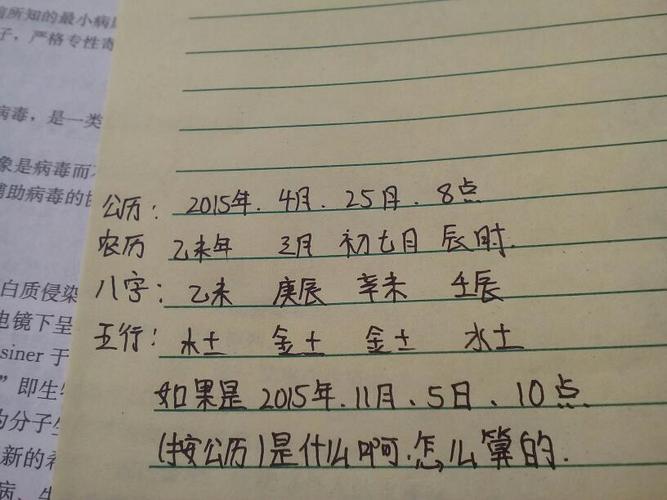 所知的最小病
子，严格专性寄
病毒，是一类
象是病毒而
辅助病毒的
公历：2015年.4月.25日.8点
农历 乙未年 三月 初七日 辰时.
白质侵染
八字：乙未 庚辰 辛未 壬辰
电镜下呈
五行：水土 金土 金土 水土
siner 于
”即生
如果是2015年.11月、5日、10点.
为分子生
(按公历)是什么啊.怎么算的.
新的
病、生